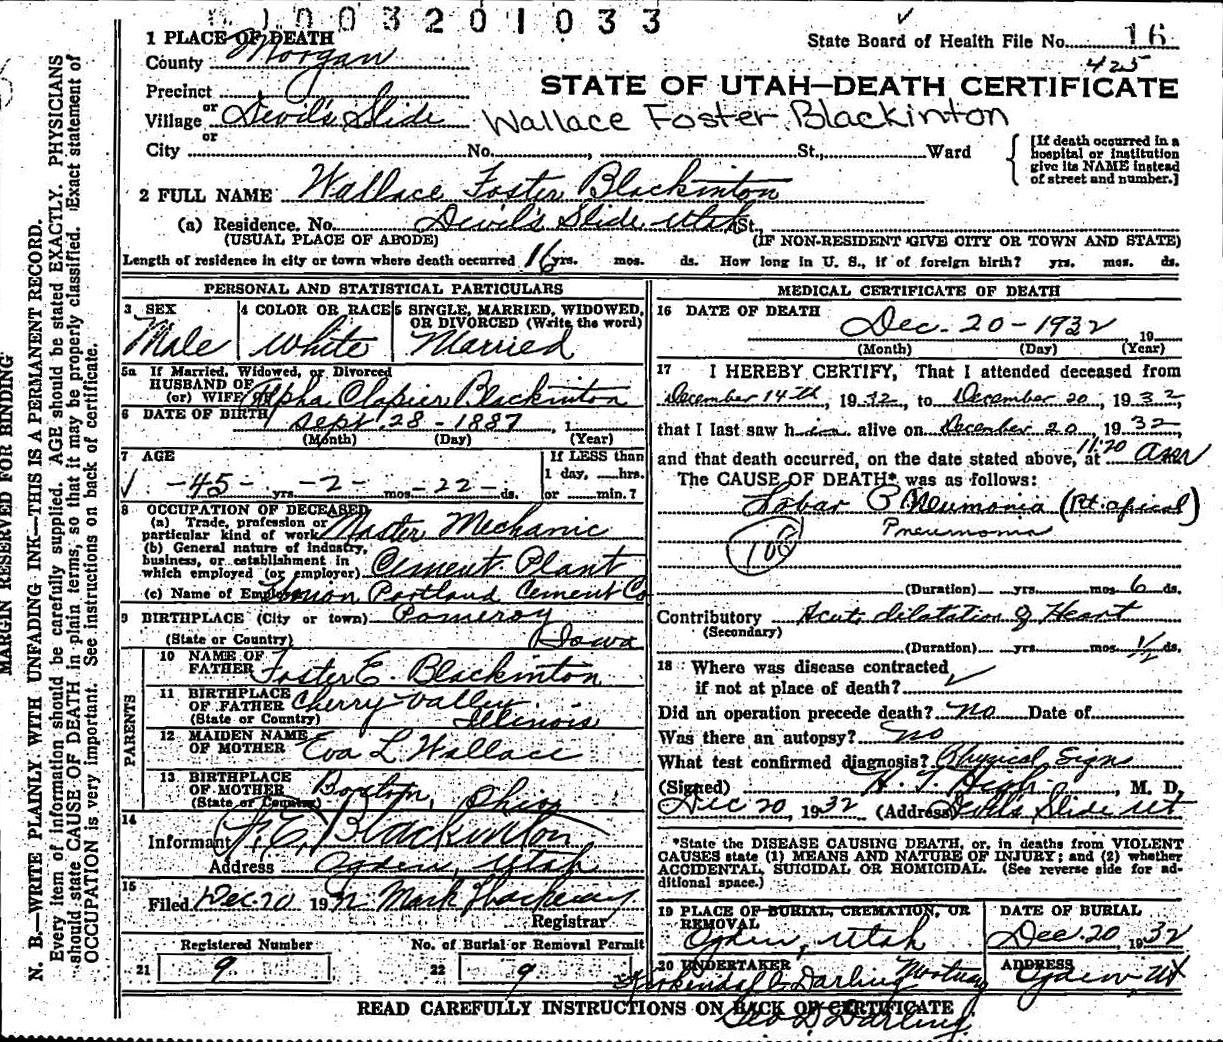 1003201033
1 PLACE OF DEATH
State Board of Health File No. 16
County Morgan
425
Precinct
STATE OF UTAH—DEATH CERTIFICATE
or
Village Devil's Slide
Wallace Foster Blackinton
or
City No. St., Ward
[If death occurred in a hospital or institution give its NAME instead of street and number.]
2 FULL NAME Wallace Foster Blackinton
(a) Residence. No. Devil's Slide Utah St.,
(USUAL PLACE OF ABODE) (IF NON-RESIDENT GIVE CITY OR TOWN AND STATE)
Length of residence in city or town where death occurred 16 yrs. mos. ds. How long in U. S., if of foreign birth? yrs. mos. ds.
PERSONAL AND STATISTICAL PARTICULARS
3 SEX
Male
4 COLOR OR RACE
White
5 SINGLE, MARRIED, WIDOWED,
OR DIVORCED (Write the word)
Married
5a If Married, Widowed, or Divorced
HUSBAND OF
(or) WIFE OF Alpha Clapier Blackinton
6 DATE OF BIRTH Sept. 28 - 1887, 1
(Month) (Day) (Year)
7 AGE
-45- yrs. -2- mos. -22- ds.
If LESS than
1 day, hrs.
or min.?
8 OCCUPATION OF DECEASED
(a) Trade, profession or
particular kind of work Master Mechanic
(b) General nature of industry,
business, or establishment in
which employed (or employer) Cement Plant
(c) Name of Employer Union Portland Cement Co
9 BIRTHPLACE (City or town) Pomeroy
(State or Country) Iowa
PARENTS
10 NAME OF
FATHER Foster E. Blackinton
11 BIRTHPLACE
OF FATHER Cherry Valley
(State or Country) Illinois
12 MAIDEN NAME
OF MOTHER Eva L Wallace
13 BIRTHPLACE
OF MOTHER Ohio
(State or Country)
14
Informant F. E. Blackinton
Address Ogden, Utah
15
Filed Dec. 20 1932 Mark
Registrar
Registered Number
21 9
No. of Burial or Removal Permit
22 9
MEDICAL CERTIFICATE OF DEATH
16 DATE OF DEATH
Dec. 20 - 1932 19
(Month) (Day) (Year)
17 I HEREBY CERTIFY, That I attended deceased from
December 14th, 1932, to December 20, 1932,
that I last saw him alive on December 20 1932
and that death occurred, on the date stated above, at 11:20 am
The CAUSE OF DEATH* was as follows:
Lobar Pneumonia (Rt. apical)
Pneumonia
108
(Duration) yrs. mos. 6 ds.
Contributory Acute dilatation of Heart
(Secondary)
(Duration) yrs. mos. 1/2 ds.
18 Where was disease contracted
if not at place of death?
Did an operation precede death? No Date of
Was there an autopsy? No
What test confirmed diagnosis? Physical Signs
(Signed) H. T. High, M. D.
Dec 20, 1932 (Address) Devils Slide Ut
*State the DISEASE CAUSING DEATH, or, in deaths from VIOLENT
CAUSES state (1) MEANS AND NATURE OF INJURY; and (2) whether
ACCIDENTAL, SUICIDAL OR HOMICIDAL. (See reverse side for ad-
ditional space.)
19 PLACE OF BURIAL, CREMATION, OR
REMOVAL
Ogden, Utah
DATE OF BURIAL
Dec. 20 1932
20 UNDERTAKER
Kirkendall & Darling Mortuary
ADDRESS
Ogden Ut
READ CAREFULLY INSTRUCTIONS ON BACK OF CERTIFICATE
Geo D. Darling
MARGIN RESERVED FOR BINDING
N. B.—WRITE PLAINLY WITH UNFADING INK—THIS IS A PERMANENT RECORD.
Every item of information should be carefully supplied. AGE should be stated EXACTLY. PHYSICIANS
should state CAUSE OF DEATH in plain terms, so that it may be properly classified. Exact statement of
OCCUPATION is very important. See instructions on back of certificate.